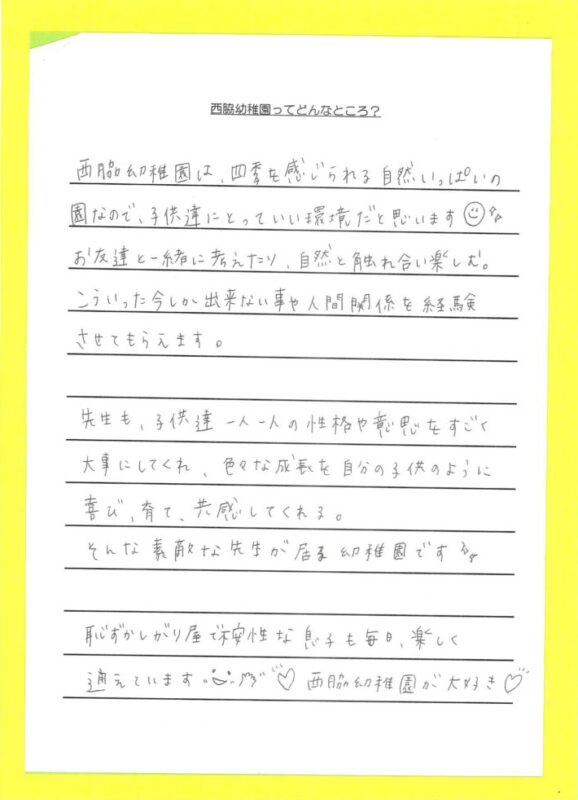 西脇幼稚園ってどんなところ？
西脇幼稚園は、四季を感じられる自然いっぱいの
園なので、子供達にとっていい環境だと思います
お友達と一緒に考えたり、自然と触れ合い楽しむ。
こういった今しか出来ない事や人間関係を経験
させてもらえます。
先生も、子供達一人一人の性格や意思をすごく
大事にしてくれ、色々な成長を自分の子供のように
喜び、育て、共感してくれる。
そんな素敵な先生が居る幼稚園です
恥ずかしがり屋で不安性な息子も毎日、楽しく
通えています 西脇幼稚園が大好き♡